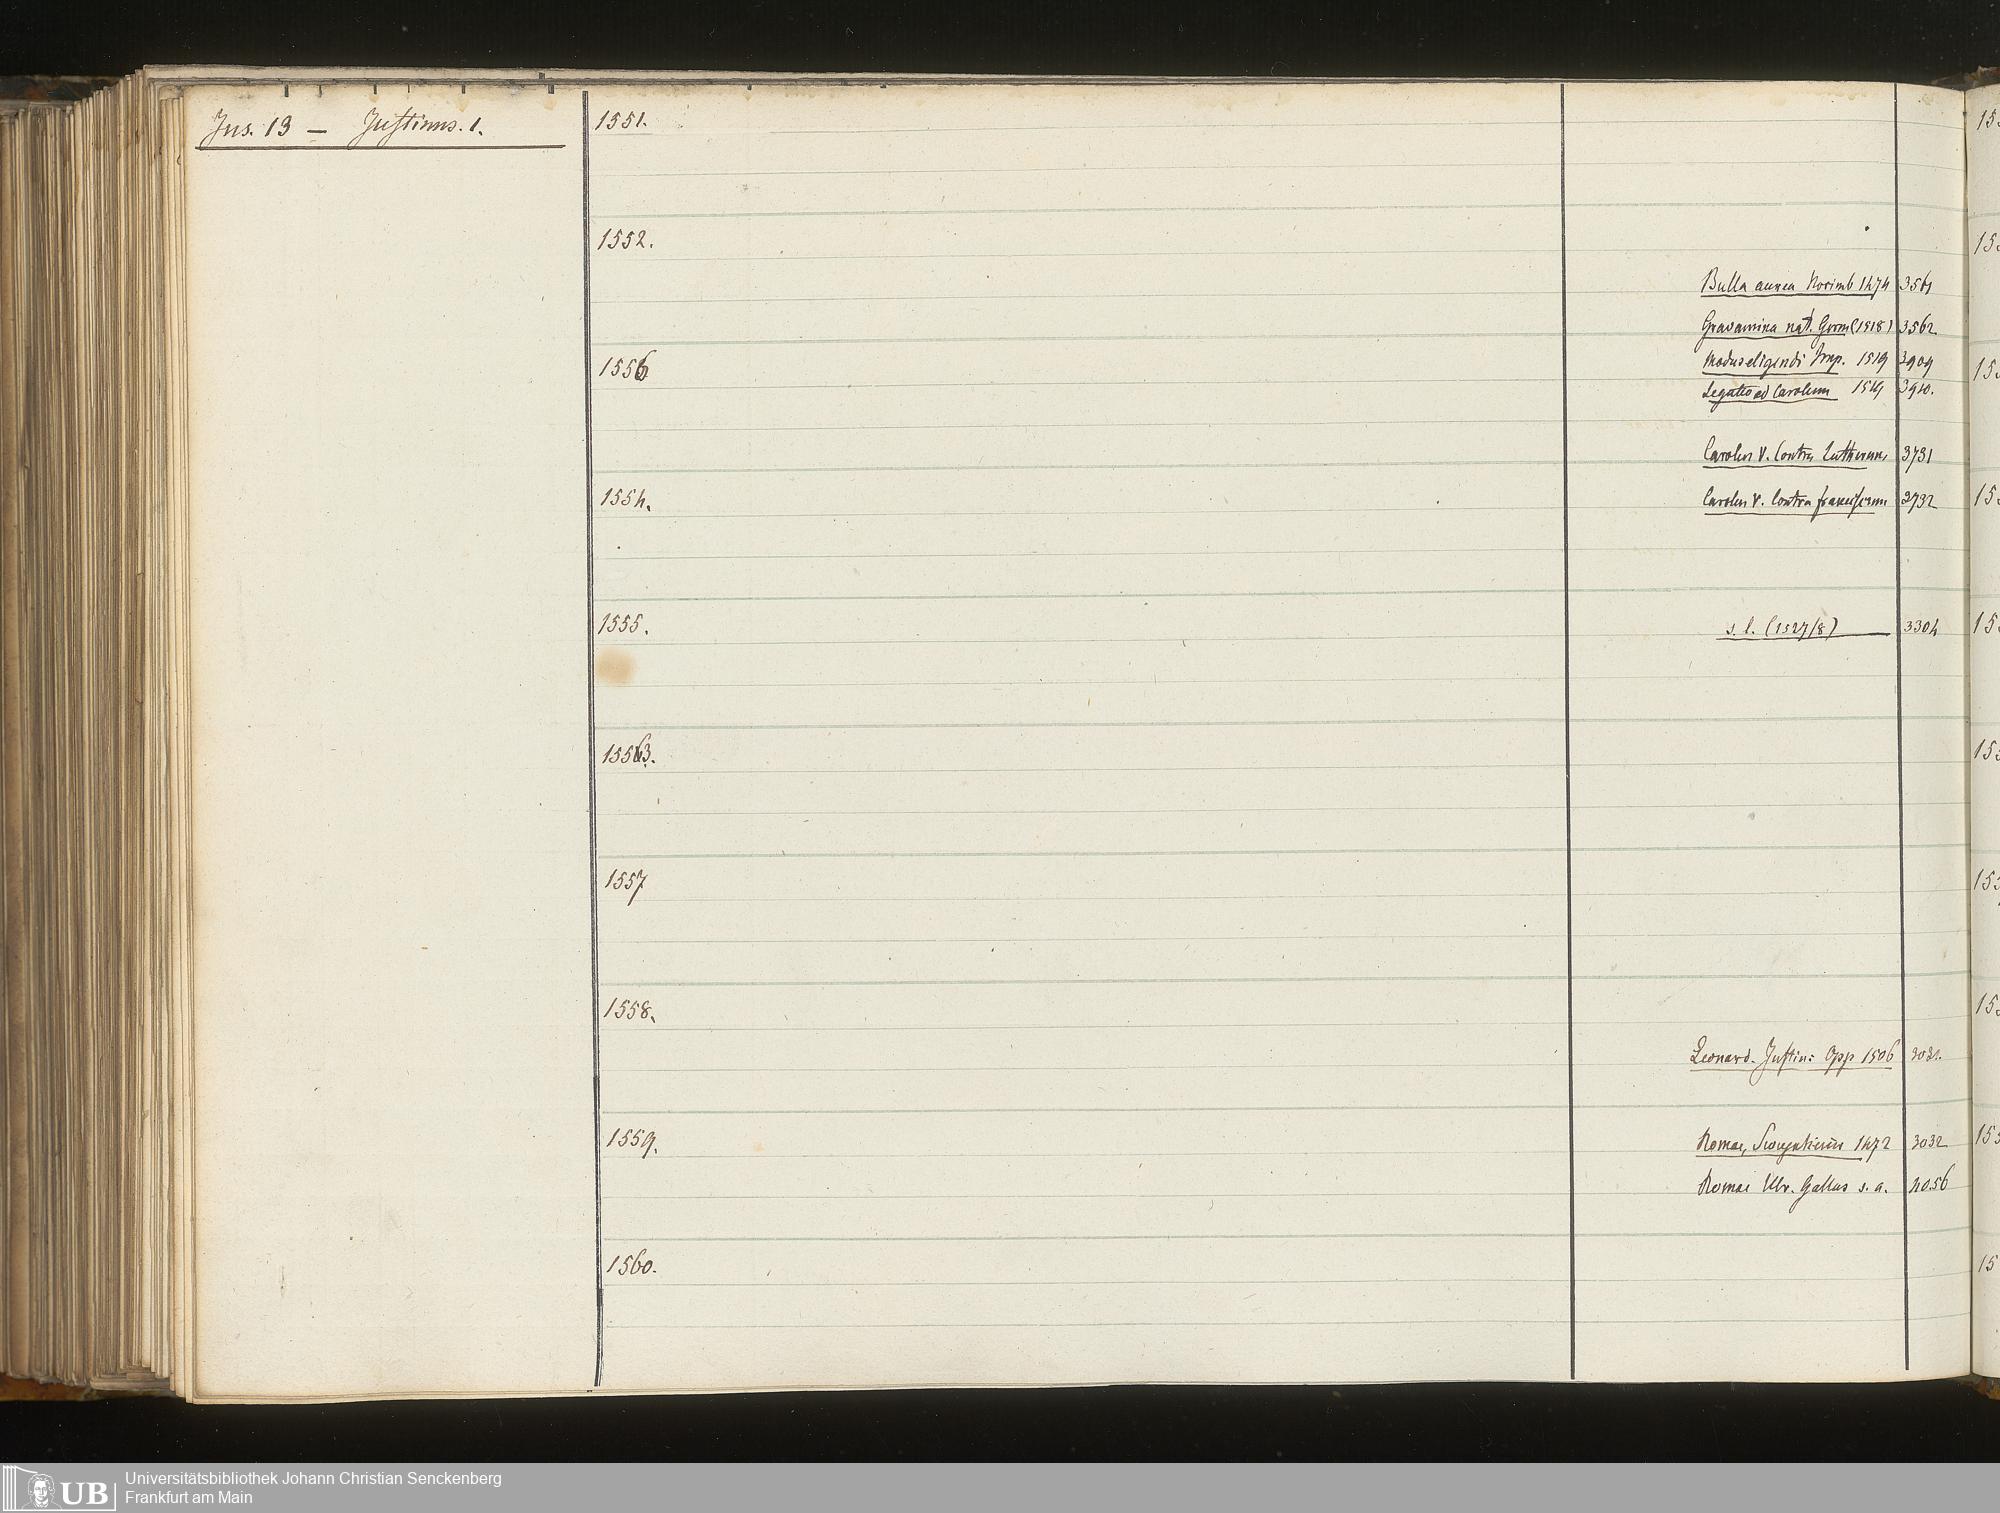 Jus. 13 — Justinus. 1.
1551.
1552.
Bulla aurea Norimb 1474 3561
Gravamina nat. Germ (1518) 3562
1556
Modus eligendi Imp. 1519 3909
Legatio ad Carolum 1519 3910.
Carolus V. Contra Lutherum 3731
1554.
Carolus V. Contra franciscum 3732
1555.
s. l. (1527/8) 3304
1553.
1557
1558.
Leonard. Justin: Opp 1506 3031.
1559.
Romae, 1472 3032
Romae Ulr. Gallus s. a. 4056
1560.
Universitätsbibliothek Johann Christian Senckenberg
Frankfurt am Main
UB